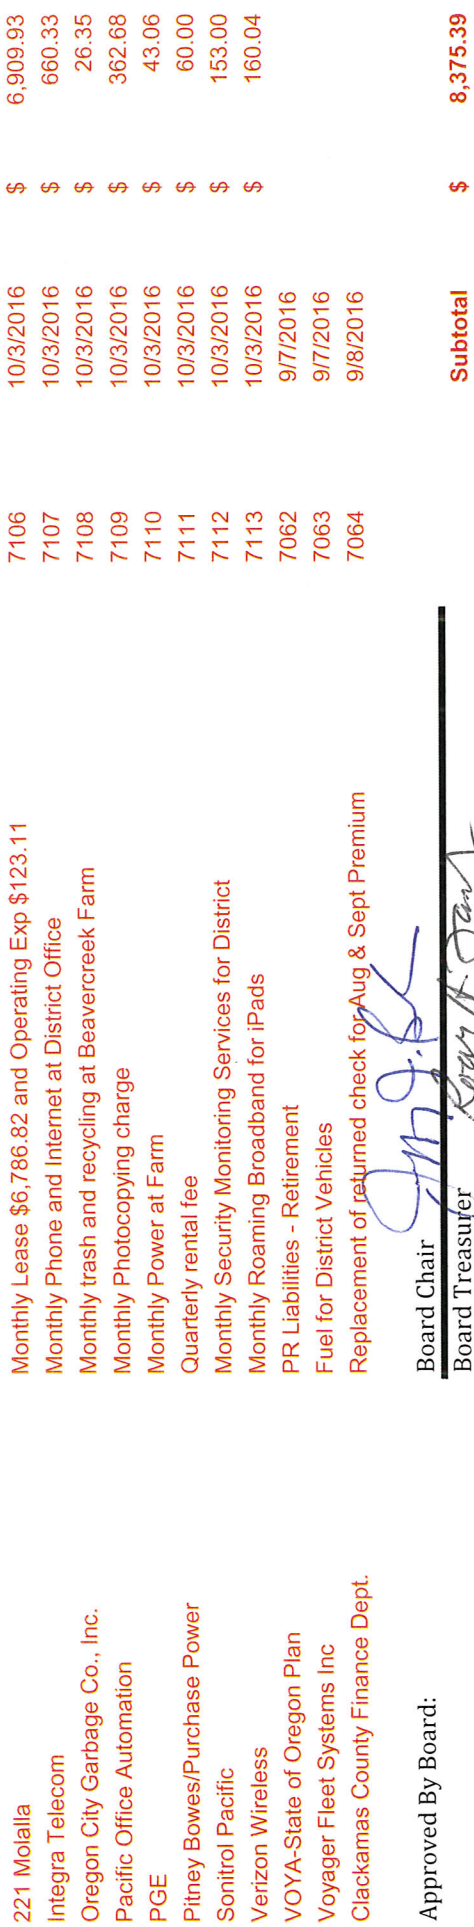 221 Molalla Monthly Lease $6,786.82 and Operating Exp $123.11 7106 10/3/2016 $ 6,909.93
Integra Telecom Monthly Phone and Internet at District Office 7107 10/3/2016 $ 660.33
Oregon City Garbage Co., Inc. Monthly trash and recycling at Beavercreek Farm 7108 10/3/2016 $ 26.35
Pacific Office Automation Monthly Photocopying charge 7109 10/3/2016 $ 362.68
PGE Monthly Power at Farm 7110 10/3/2016 $ 43.06
Pitney Bowes/Purchase Power Quarterly rental fee 7111 10/3/2016 $ 60.00
Sonitrol Pacific Monthly Security Monitoring Services for District 7112 10/3/2016 $ 153.00
Verizon Wireless Monthly Roaming Broadband for iPads 7113 10/3/2016 $ 160.04
VOYA-State of Oregon Plan PR Liabilities - Retirement 7062 9/7/2016
Voyager Fleet Systems Inc Fuel for District Vehicles 7063 9/7/2016
Clackamas County Finance Dept. Replacement of returned check for Aug & Sept Premium 7064 9/8/2016
Approved By Board: Board Chair
Subtotal $ 8,375.39
Board Treasurer